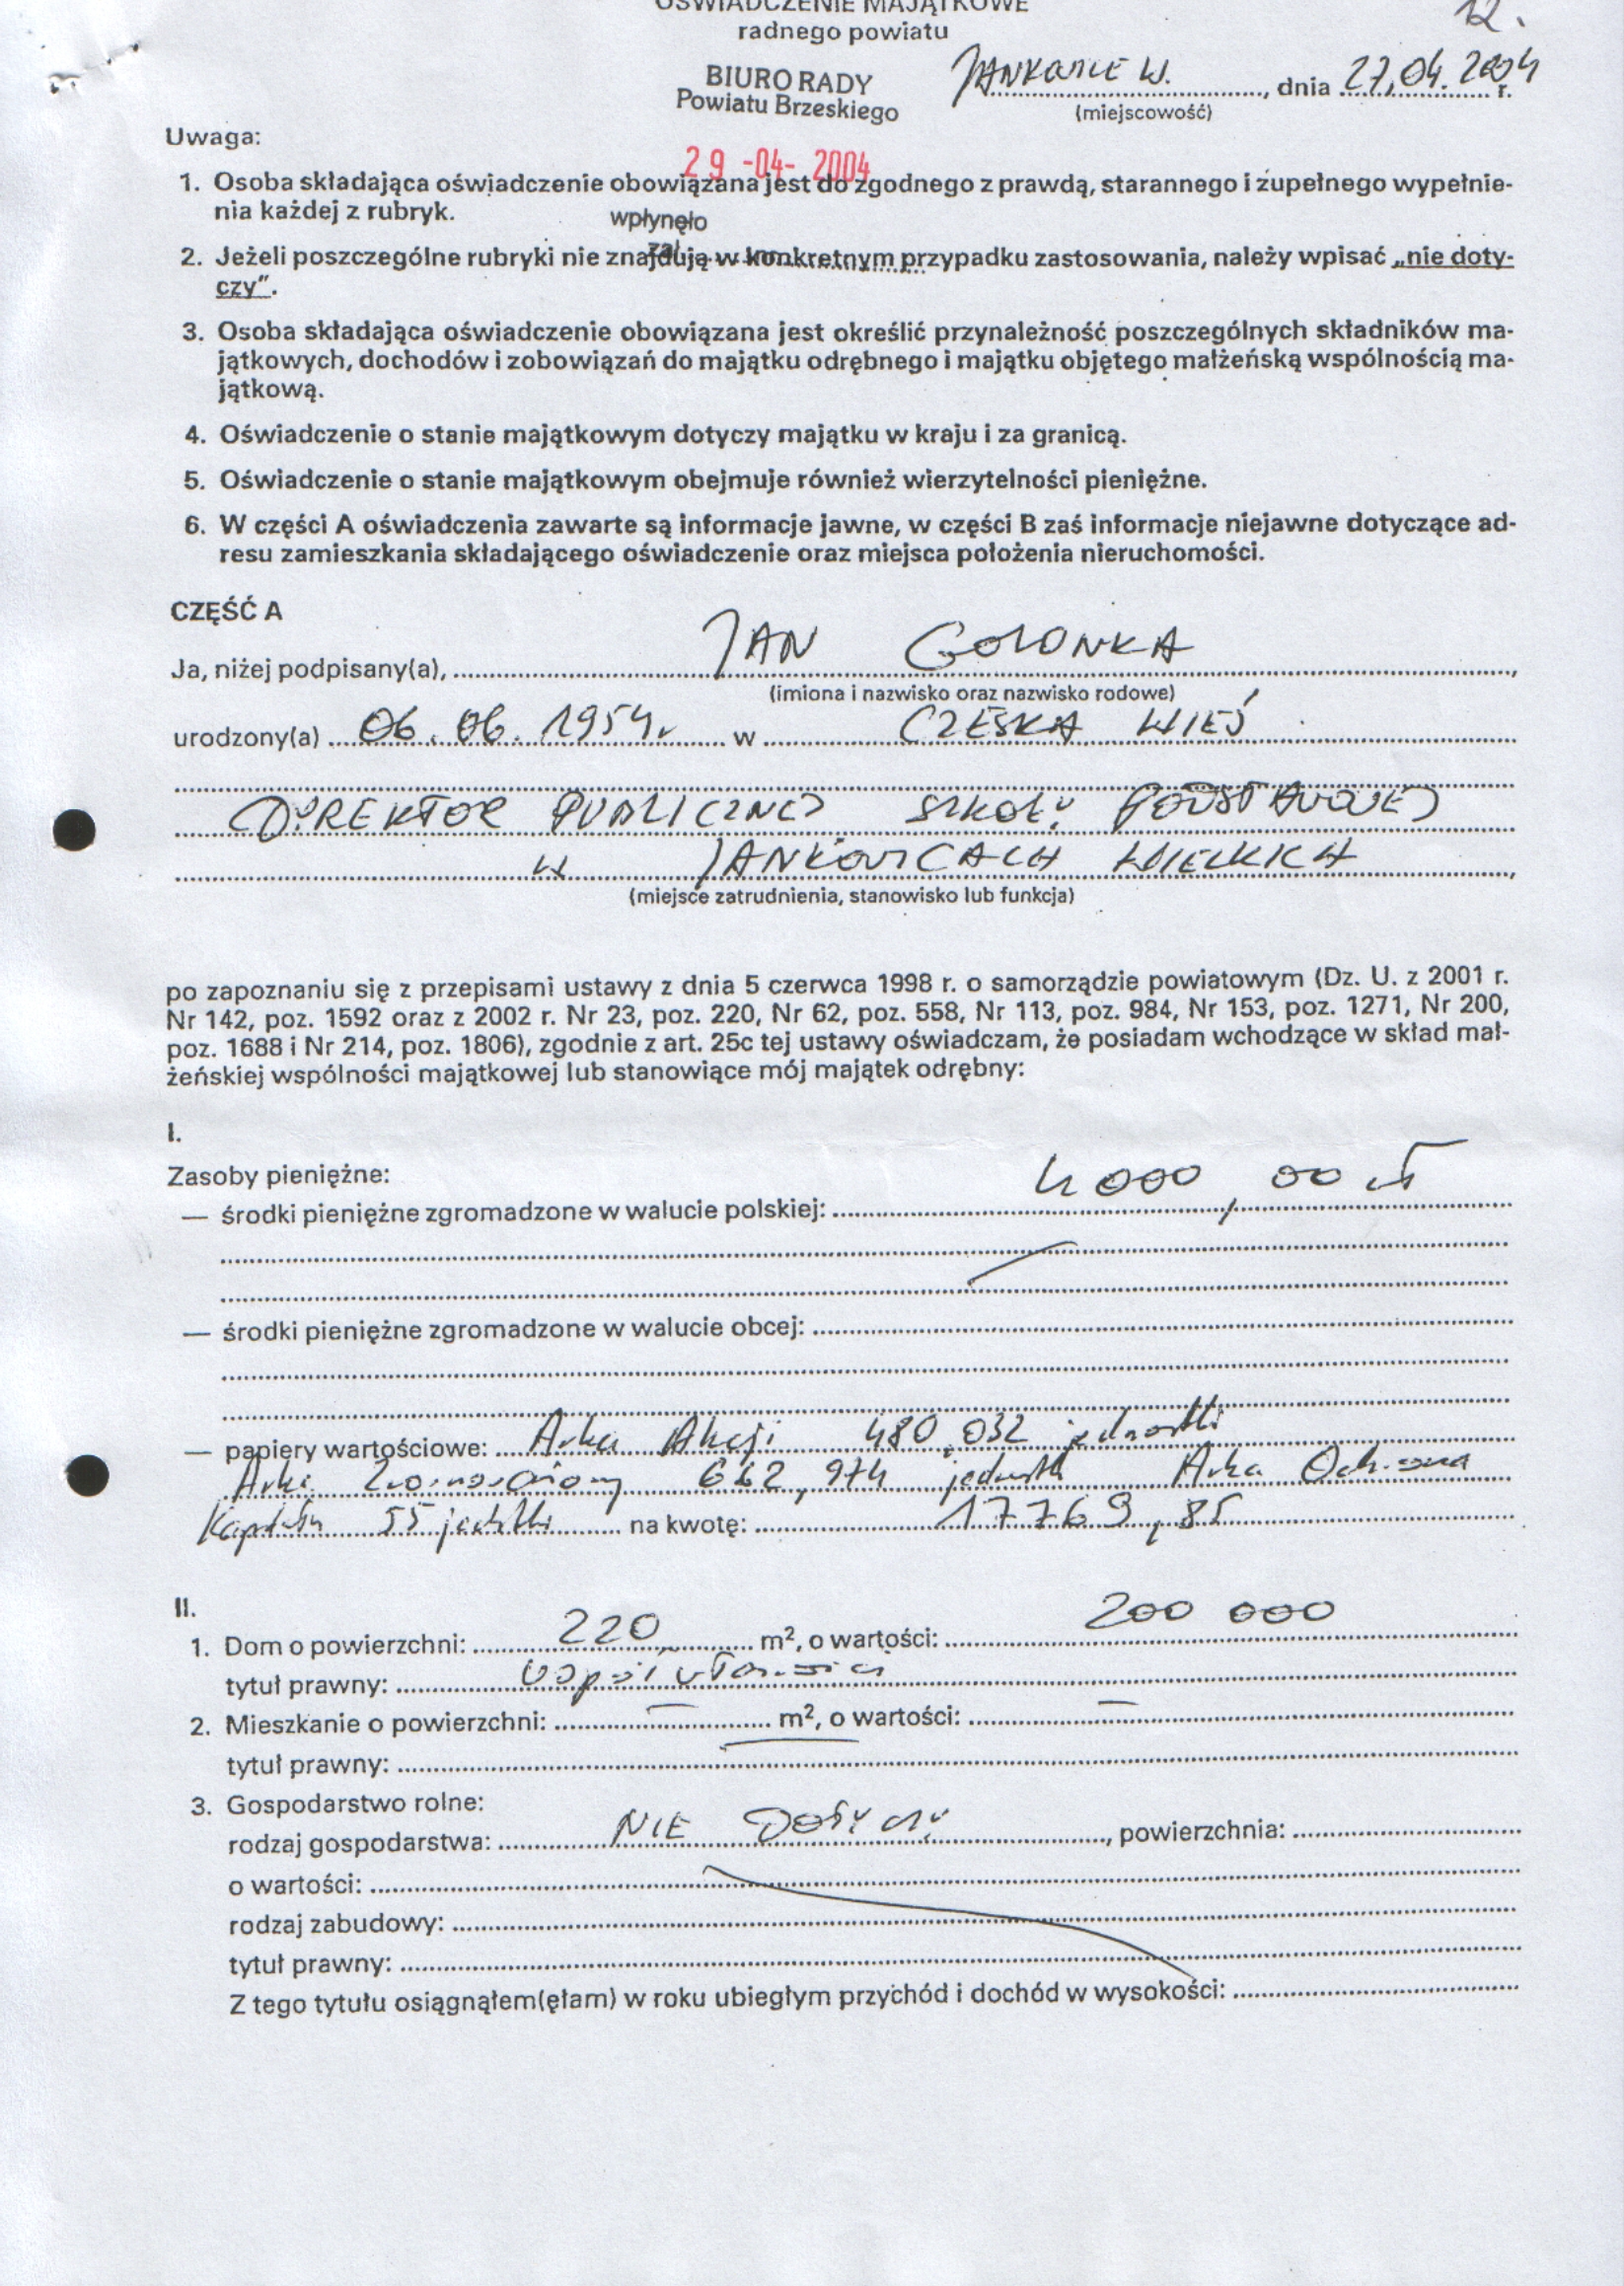 OŚWIADCZENIE MAJĄTKOWE
12.
radnego powiatu
BIURO RADY
Powiatu Brzeskiego
JANKOWICE W. , dnia 27.04.2004 r.
(miejscowość)
Uwaga:
29 -04- 2004
1. Osoba składająca oświadczenie obowiązana jest do zgodnego z prawdą, starannego i zupełnego wypełnie-
nia każdej z rubryk.
wpłynęło
zał.
2. Jeżeli poszczególne rubryki nie znajdują w konkretnym przypadku zastosowania, należy wpisać „nie doty-
czy”.
3. Osoba składająca oświadczenie obowiązana jest określić przynależność poszczególnych składników ma-
jątkowych, dochodów i zobowiązań do majątku odrębnego i majątku objętego małżeńską wspólnością ma-
jątkową.
4. Oświadczenie o stanie majątkowym dotyczy majątku w kraju i za granicą.
5. Oświadczenie o stanie majątkowym obejmuje również wierzytelności pieniężne.
6. W części A oświadczenia zawarte są informacje jawne, w części B zaś informacje niejawne dotyczące ad-
resu zamieszkania składającego oświadczenie oraz miejsca położenia nieruchomości.
CZĘŚĆ A
Ja, niżej podpisany(a), JAN GOLONKA ,
(imiona i nazwisko oraz nazwisko rodowe)
urodzony(a) 06.06.1954r w CZESKA WIEŚ
DYREKTOR PUBLICZNEJ SZKOŁY PODSTAWOWEJ
W JANKOWICACH WIELKICH ,
(miejsce zatrudnienia, stanowisko lub funkcja)
po zapoznaniu się z przepisami ustawy z dnia 5 czerwca 1998 r. o samorządzie powiatowym (Dz. U. z 2001 r.
Nr 142, poz. 1592 oraz z 2002 r. Nr 23, poz. 220, Nr 62, poz. 558, Nr 113, poz. 984, Nr 153, poz. 1271, Nr 200,
poz. 1688 i Nr 214, poz. 1806), zgodnie z art. 25c tej ustawy oświadczam, że posiadam wchodzące w skład mał-
żeńskiej wspólności majątkowej lub stanowiące mój majątek odrębny:
I.
Zasoby pieniężne:
— środki pieniężne zgromadzone w walucie polskiej: 4000,00 zł
— środki pieniężne zgromadzone w walucie obcej:
— papiery wartościowe: Arka Akcji 480,032 jednostki
Arka Zrównoważony 662,974 jednostki Arka Ochrona
Kapitału 55 jednostki na kwotę: 17769,85
II.
1. Dom o powierzchni: 220 m², o wartości: 200 000
tytuł prawny: współwłasność
2. Mieszkanie o powierzchni: — m², o wartości: —
tytuł prawny:
3. Gospodarstwo rolne:
rodzaj gospodarstwa: NIE DOTYCZY , powierzchnia:
o wartości:
rodzaj zabudowy:
tytuł prawny:
Z tego tytułu osiągnąłem(ęłam) w roku ubiegłym przychód i dochód w wysokości: